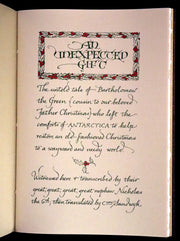 AN
UNEXPECTED
GIFT
The untold tale of Bartholomew
the Green (cousin to our beloved
Father Christmas) who left the
comforts of ANTARCTICA to help
restore an old-fashioned Christmas
to a wayward and needy world.
Witnessed here & transcribed by their
great, great, great, great nephew, Nicholas
the 6th, then translated by